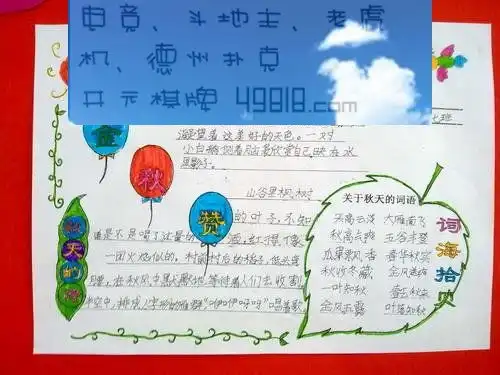 电竞、斗地主、老虎
机、德州扑克
开元棋牌 49818.com
上班
凝望着这美好的天色。一对
小白鹅侧着头欣赏自己映在水
里影子。
金
秋
赞
山谷里枫树
的叶子，不知
道是不是喝了过量的酒，红得像
一团火
村前村后的稻子，低头弯
腰，在秋风中默默地等待着人们去收割
空中，排成人字形的雁群“咿咿呀呀”唱着歌
秋天的
关于秋天的词语
天高云淡 大雁南飞
秋高气爽 五谷丰登
瓜果飘香 春华秋实
秋收冬藏 金风送爽
一叶知秋
金风玉露 叶落知秋
词海拾贝